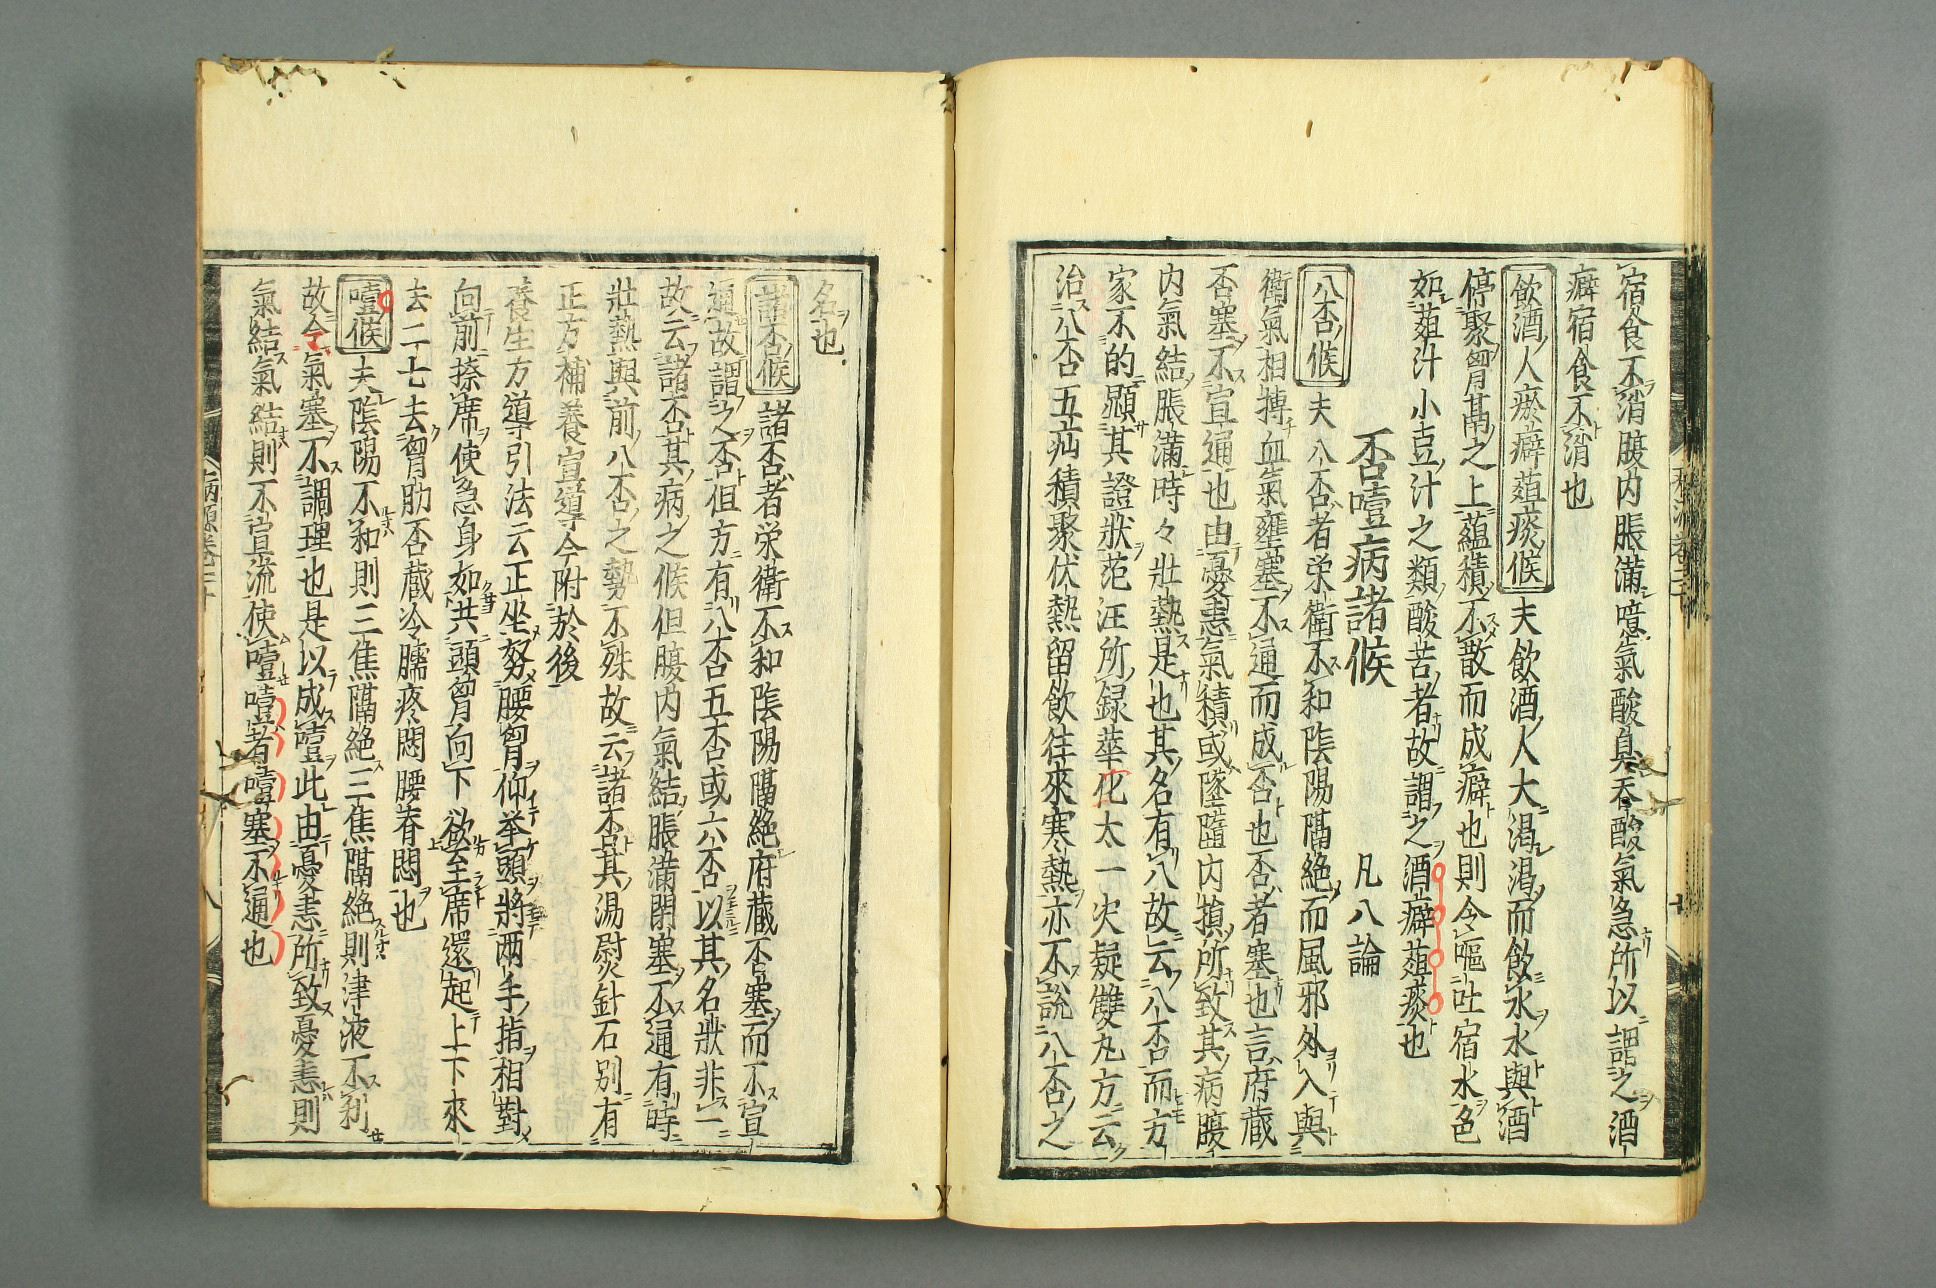 宿食不消腹内脹滿噫氣酸臭吞酸氣急所以謂之酒
癖宿食不消也
飲酒人瘀癖菹痰候 夫飲酒人大渴渴而飲水水與酒
停聚胷鬲之上蘊積不散而成癖也則令嘔吐宿水色
如菹汁小豆汁之類酸苦者故謂之酒癖菹痰也
否噎病諸候 凡八論
八否候 夫八否者栄衛不和陰陽隔絶而風邪外入與
衛氣相搏血氣壅塞不通而成否也否者塞也言府蔵
否塞不宣通也由憂恚氣積或墜墮内損所致其病腹
内氣結脹滿時々壯熱是也其名有八故云八否而方
家不的顯其證狀范汪所録華佗太一決疑雙丸方云
治八否五疝積聚伏熱留飲往來寒熱亦不説八否之
名也
諸否候 諸否者栄衛不和陰陽隔絶府蔵否塞而不宣
通故謂之否但方有八否五否或六否以其名狀非一
故云諸否其病之候但腹内氣結脹滿閉塞不通有時
壯熱與前八否之勢不殊故云諸否其湯熨針石別有
正方補養宣導今附於後
養生方導引法云正坐努腰胷仰举頭將兩手指相對
向前捺席使急身如共頭胷向下欲至席還起上下來
去二七去胷肋否蔵冷臑疼悶腰脊悶也
噎候 夫陰陽不和則三焦隔絶三焦隔絶則津液不利
故令氣塞不調理也是以成噎此由憂恚所致憂恚則
氣結氣結則不宣流使噎噎者噎塞不通也
病源卷二十